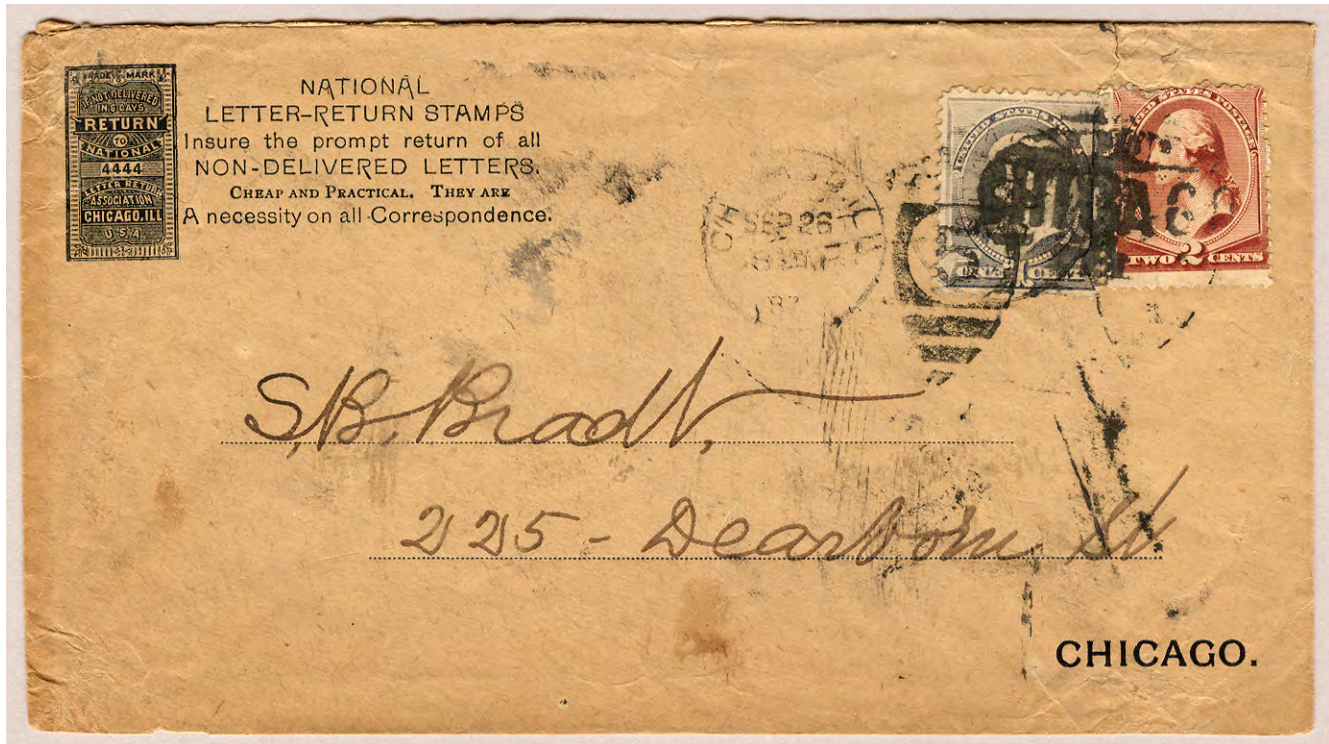 TRADE MARK
IF NOT DELIVERED
IN 6 DAYS
RETURN
TO
NATIONAL
4444
LETTER RETURN
ASSOCIATION
CHICAGO, ILL
U.S.A.
NATIONAL
LETTER-RETURN STAMPS
Insure the prompt return of all
NON-DELIVERED LETTERS.
CHEAP AND PRACTICAL. THEY ARE
A necessity on all Correspondence.
SEP 26
UNITED STATES POSTAGE
TWO 2 CENTS
S. B. Bradt,
225 - Dearborn St.
CHICAGO.